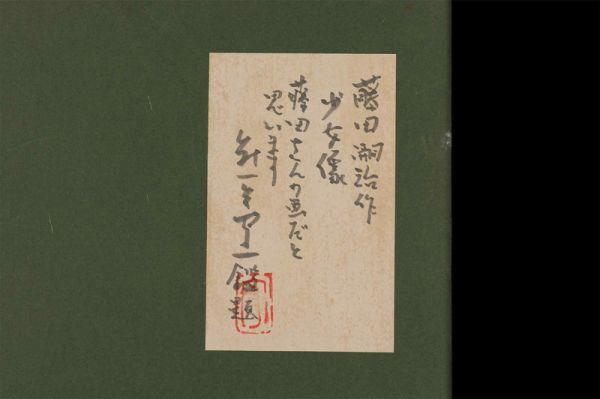 藤田嗣治作
少女像
藤田さんの画だと
思います
鑑題